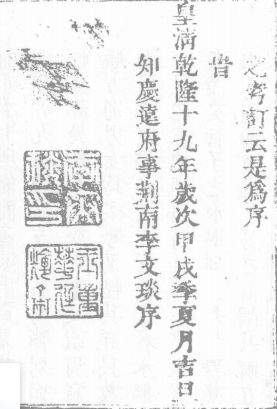 之考訂云是爲序
旹
皇清乾隆十九年歲次甲戌季夏月吉日
知慶遠府事荆南李文琰序